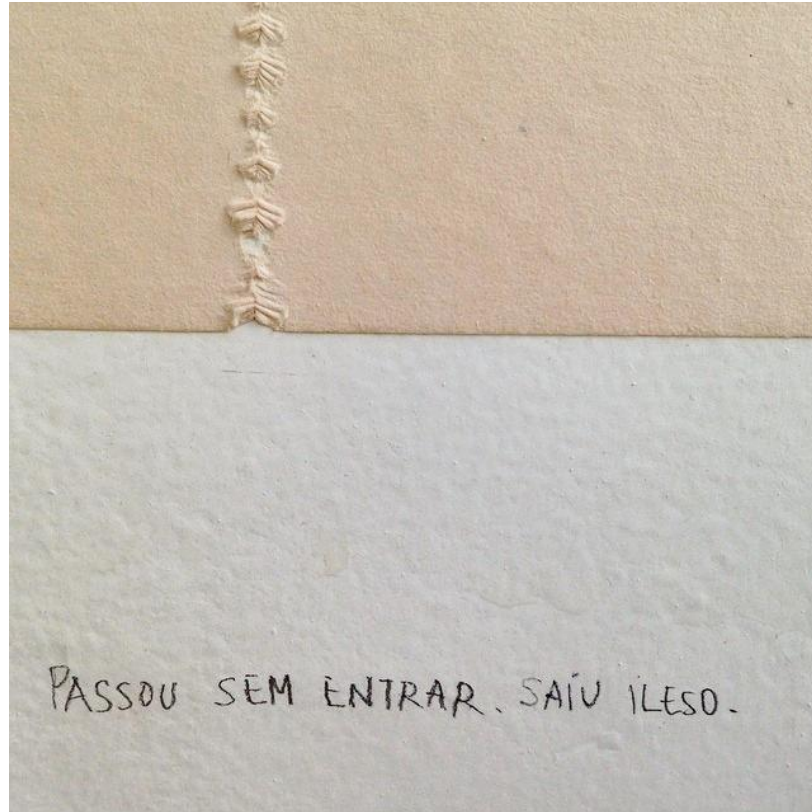 PASSOU SEM ENTRAR. SAÍU ILESO.